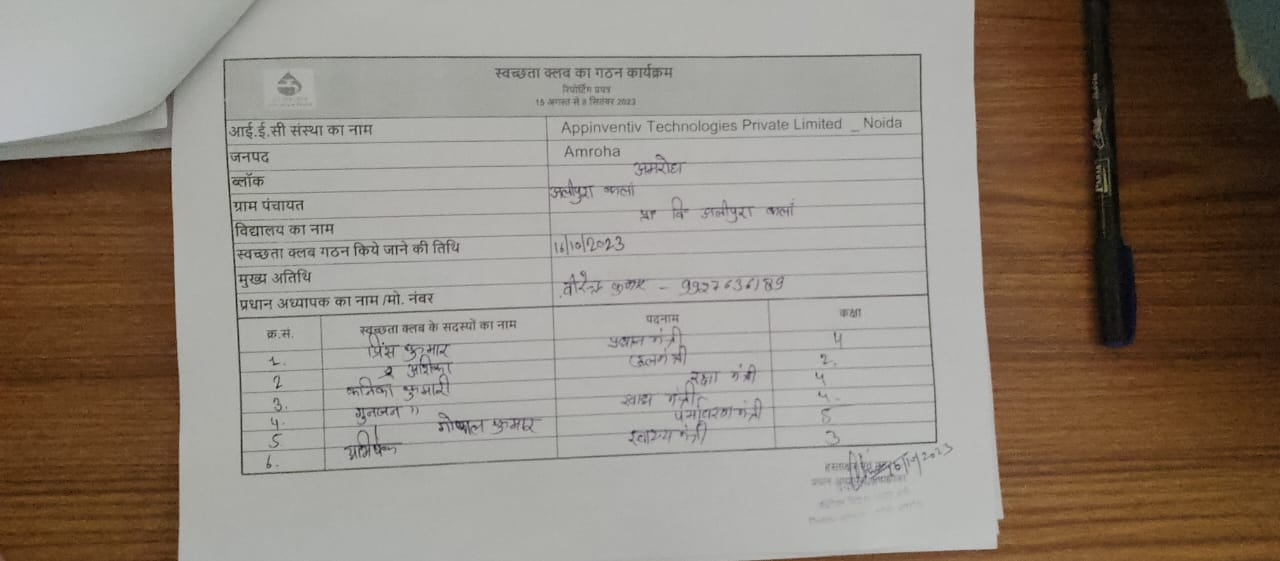 स्वच्छता क्लब का गठन कार्यक्रम
रिपोर्टिंग प्रपत्र
15 अगस्त से 8 सितंबर 2023
आई.ई.सी संस्था का नाम Appinventiv Technologies Private Limited _ Noida
जनपद Amroha
ब्लॉक अमरोहा
ग्राम पंचायत अलीपुरा कलां
विद्यालय का नाम प्रा वि अलीपुरा कलां
स्वच्छता क्लब गठन किये जाने की तिथि 16/10/2023
मुख्य अतिथि
प्रधान अध्यापक का नाम /मो. नंबर वीरेन्द्र कुमार - 9927636189
क्र.सं. स्वच्छता क्लब के सदस्यों का नाम पदनाम कक्षा
1. प्रिंस कुमार प्रधान मंत्री 4
2 अंशिका जलमंत्री 2
3. कनिका कुमारी रक्षा मंत्री 4
4. गुनजन " खाद्य मंत्री 4
5 गोपाल कुमार पर्यावरण मंत्री 5
6. अभिषेक स्वास्थ्य मंत्री 3